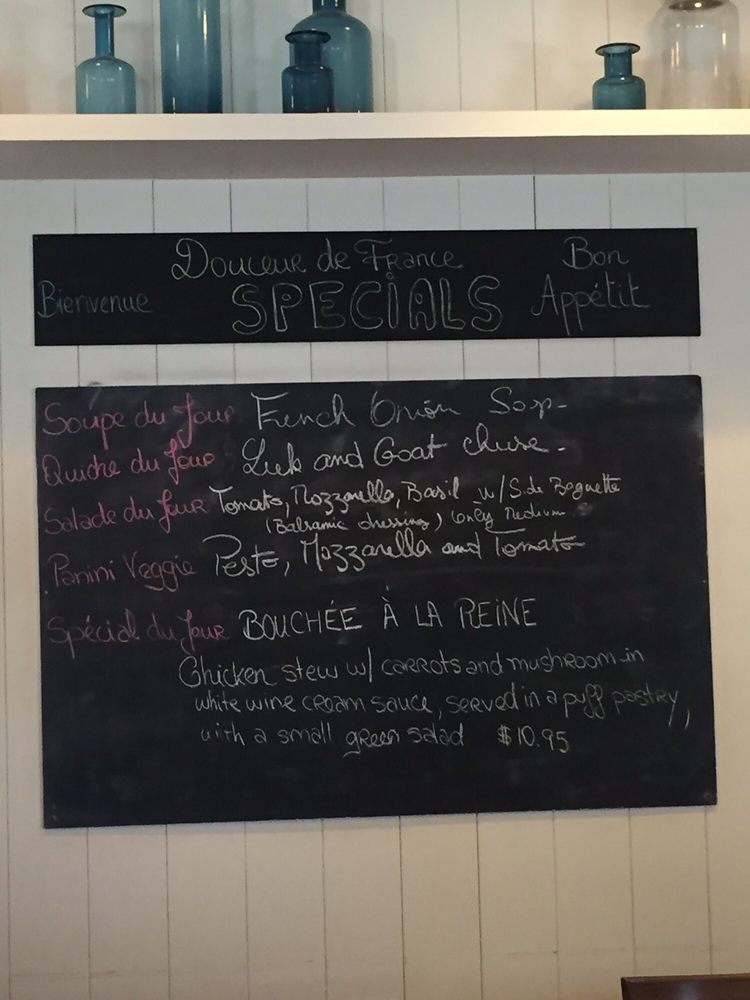 Douceur de France
Bienvenue SPECiALS Bon Appétit
Soupe du Jour French Onion Soup-
Quiche du Jour Leek and Goat cheese-
Salade du Jour Tomato, Mozzarella, Basil w/S. de Baguette
(Balsamic dressing) (only Medium
Panini Veggie Pesto, Mozzarella and Tomato
Spécial du Jour BOUCHÉE À LA REINE
Chicken stew w/ carrots and mushroom in
white wine cream sauce, served in a puff pastry,
with a small green salad $10.95